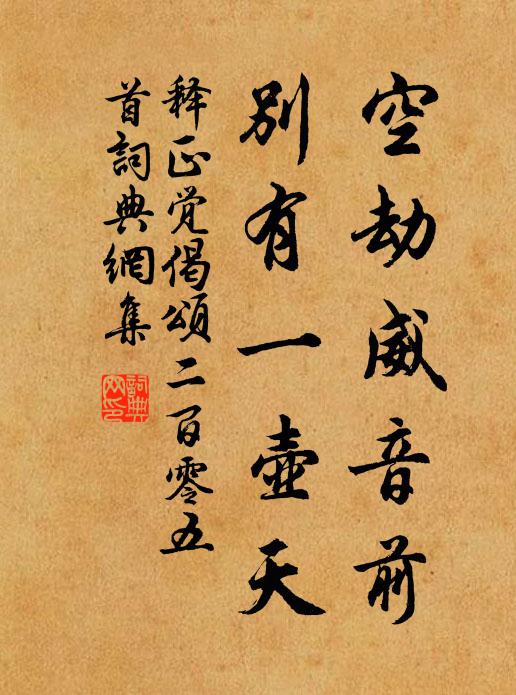 空劫威音前
别有一壶天
释正觉偈颂二百零五
首詞典網集
詞典
网印